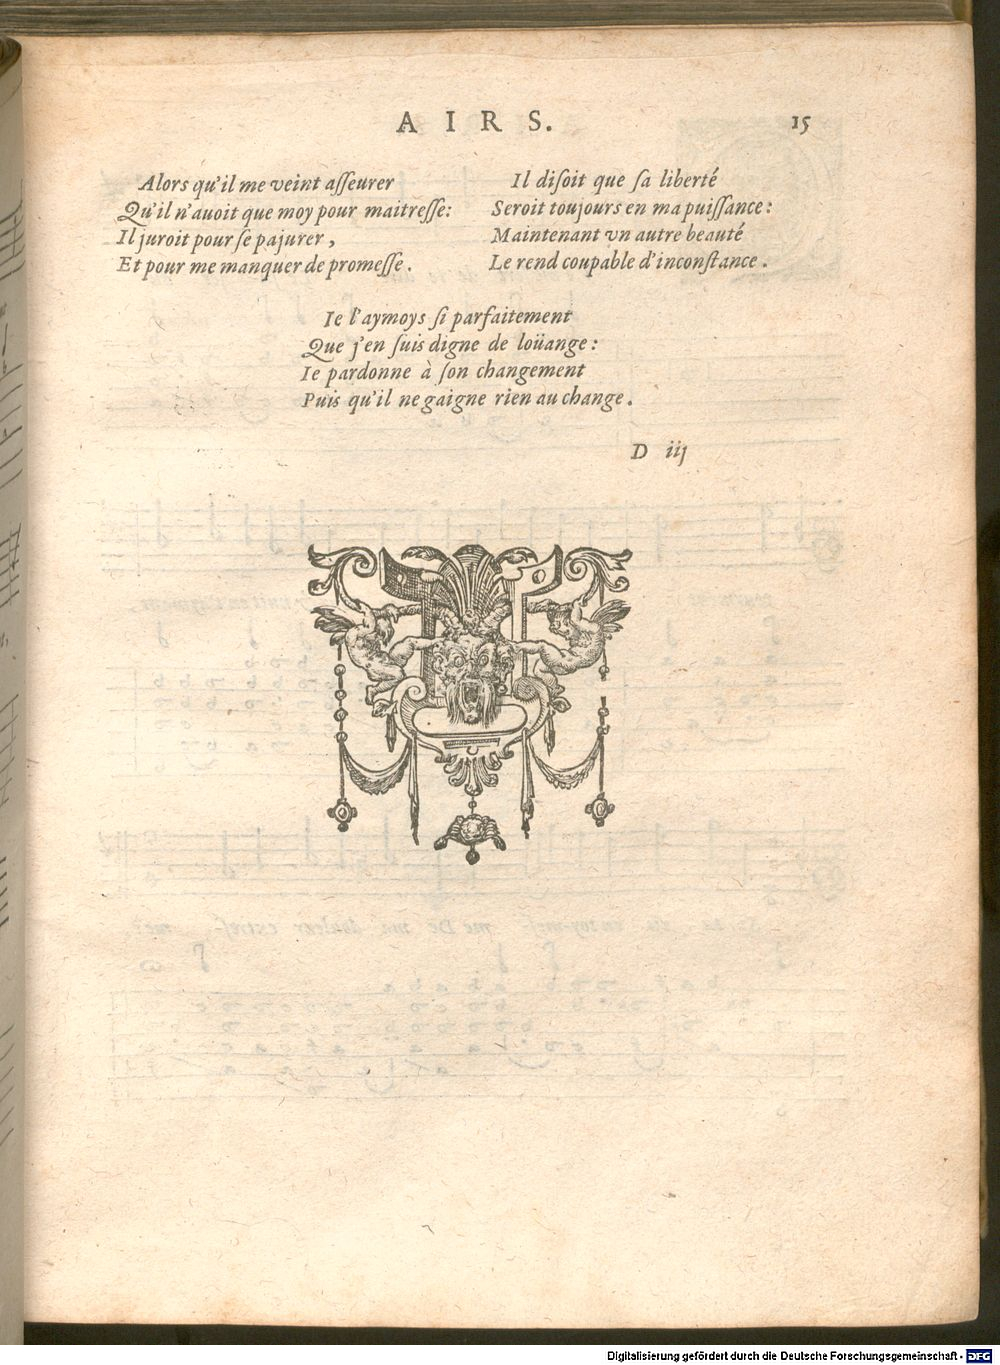 AIRS. 15
Alors qu'il me veint asseurer
Qu'il n'auoit que moy pour maitresse:
Il juroit pour se pajurer,
Et pour me manquer de promesse.
Il disoit que sa liberté
Seroit toujours en ma puissance:
Maintenant vn autre beauté
Le rend coupable d'inconstance.
Ie l'aymoys si parfaitement
Que j'en suis digne de loüange:
Ie pardonne à son changement
Puis qu'il ne gaigne rien au change.
D iij
Digitalisierung gefördert durch die Deutsche Forschungsgemeinschaft - DFG